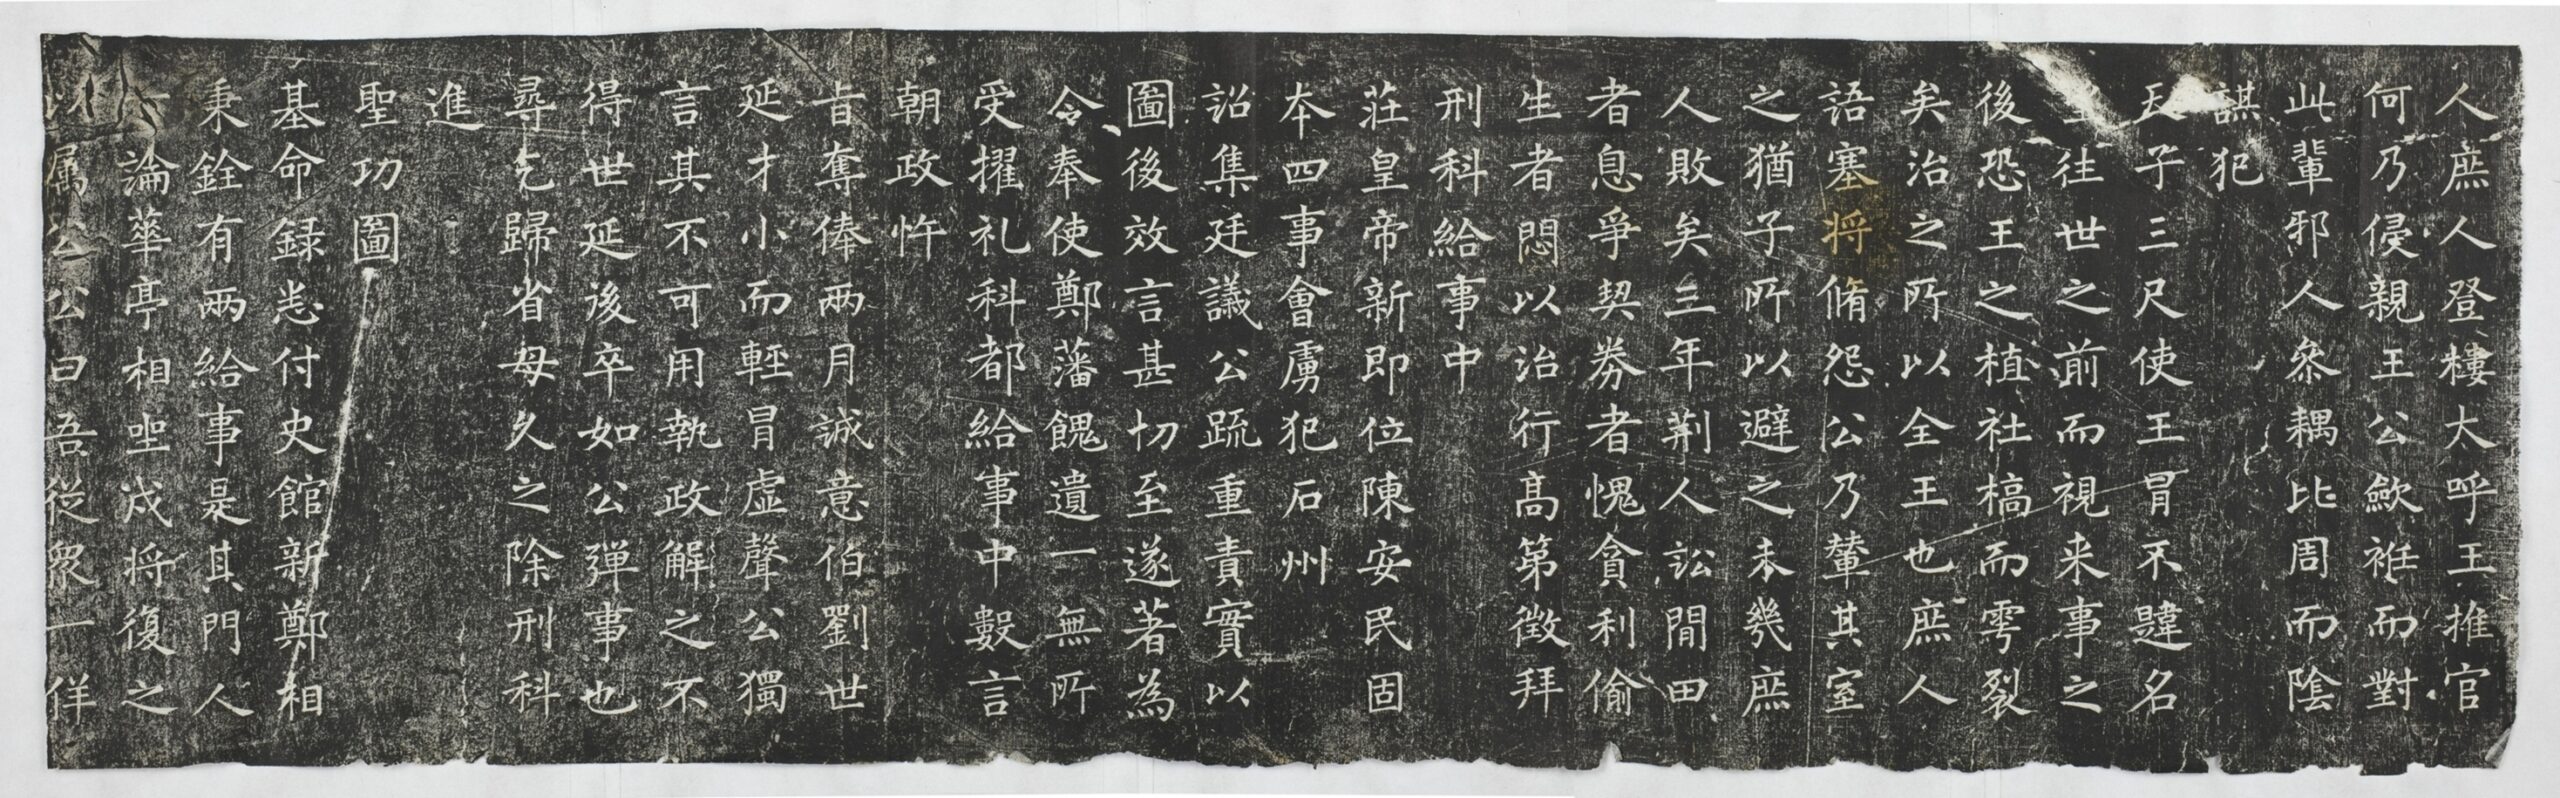 人庶人登樓太呼王推官
何乃侵親王公歛袵而對
此輩邪人叅耦比周而陰
諆犯
天子三尺使王冒不韙名
往世之前而視来事之
後恐王之植社槁而雩裂
矣治之所以全王也庶人
語塞将脩怨公乃輦其室
之猶子所以避之未㡬庶
人敗矣三年荆人訟閒田
者息爭契券者愧貪利偷
生者悶以治行髙第徴拜
刑科給事中
莊皇帝新即位陳安民固
本四事會虜犯石州
詔集廷議公疏重責實以
圖後效言甚切至遂著為
令奉使鄭藩餽遺一無所
受擢礼科都給事中數言
朝政忤
旨奪俸兩月誠意伯劉世
延才小而輕冒虛聲公獨
言其不可用執政解之不
得世延後卒如公彈事也
尋乞歸省母久之除刑科
進
聖功圖
基命録悉付史館新鄭相
秉銓有兩給事是其門人
論華亭相坐戍将復之
以属公公曰吾從衆一佯